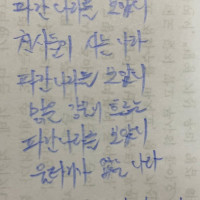 파란나라를 보았니
천사들이 사는 나라
파란나라를 보았니
맑은 강물이 흐르는
파란나라를 보았니
울타리가 없는 나라